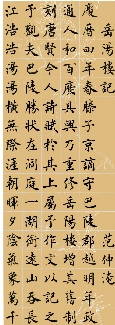 岳陽樓記 范仲淹
慶曆四年春滕子京謫守巴陵郡越明年政
通人和百廢具興乃重修岳陽樓增其舊制
刻唐賢今人詩賦於其上屬予作文以記之
予觀夫巴陵勝狀在洞庭一湖銜遠山吞長
江浩浩湯湯橫無際涯朝暉夕陰氣象萬千